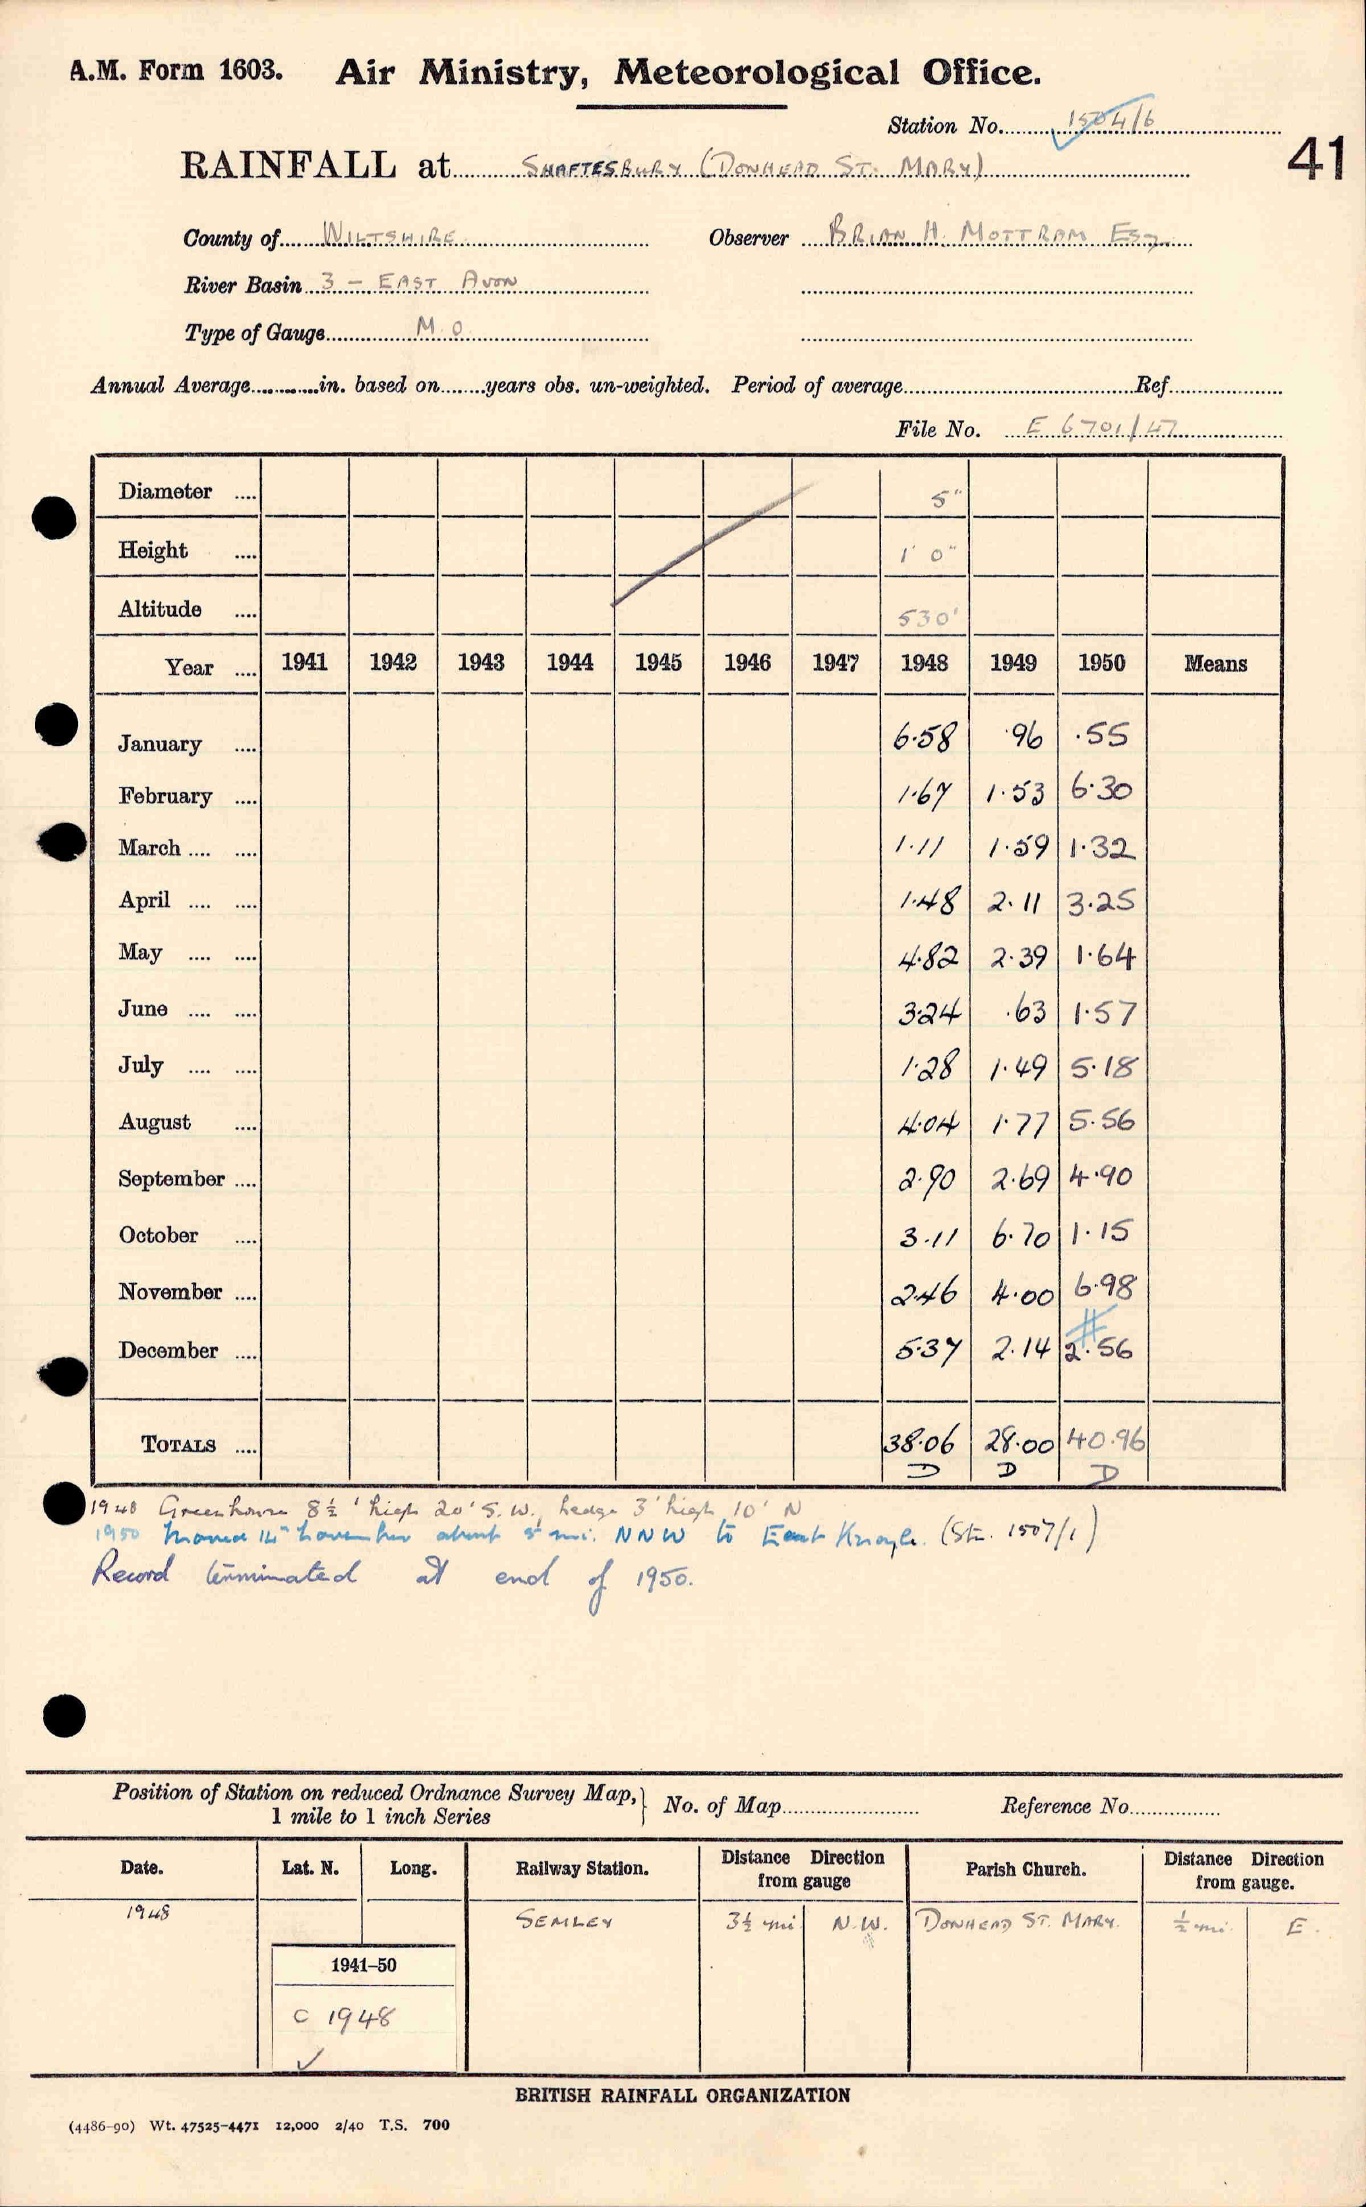 A.M. Form 1603. Air Ministry, Meteorological Office.
Station No. 1504/6
41
RAINFALL at SHAFTESBURY (DONHEAD ST. MARY)
County of WILTSHIRE Observer BRIAN H. MOTTRAM ESQ.
River Basin 3 - EAST AVON
Type of Gauge M.O.
Annual Average in. based on years obs. un-weighted. Period of average Ref
File No. E 6701/47
Diameter .... 5"
Height .... 1' 0"
Altitude .... 530'
Year .... 1941 1942 1943 1944 1945 1946 1947 1948 1949 1950 Means
January .... 6.58 .96 .55
February .... 1.67 1.53 6.30
March .... .... 1.11 1.59 1.32
April .... .... 1.48 2.11 3.25
May .... .... 4.82 2.39 1.64
June .... .... 3.24 .63 1.57
July .... .... 1.28 1.49 5.18
August .... 4.04 1.77 5.56
September .... 2.90 2.69 4.90
October .... 3.11 6.70 1.15
November .... 2.46 4.00 6.98
December .... 5.37 2.14 2.56
TOTALS .... 38.06 28.00 40.96
D D D
1948 Greenhouse 8½' high 20' S.W., hedge 3' high 10' N
1950 Moved 14th November about mi. NNW to East Knoyle. (Stn. 1507/1)
Record terminated at end of 1950.
Position of Station on reduced Ordnance Survey Map, 1 mile to 1 inch Series } No. of Map Reference No.
Date. Lat. N. Long. Railway Station. Distance Direction from gauge Parish Church. Distance Direction from gauge.
1948 SEMLEY 3½ mi N.W. DONHEAD ST. MARY. ½ mi. E.
1941–50
C 1948
✓
BRITISH RAINFALL ORGANIZATION
(4486-90) Wt. 47525-4471 12,000 2/40 T.S. 700